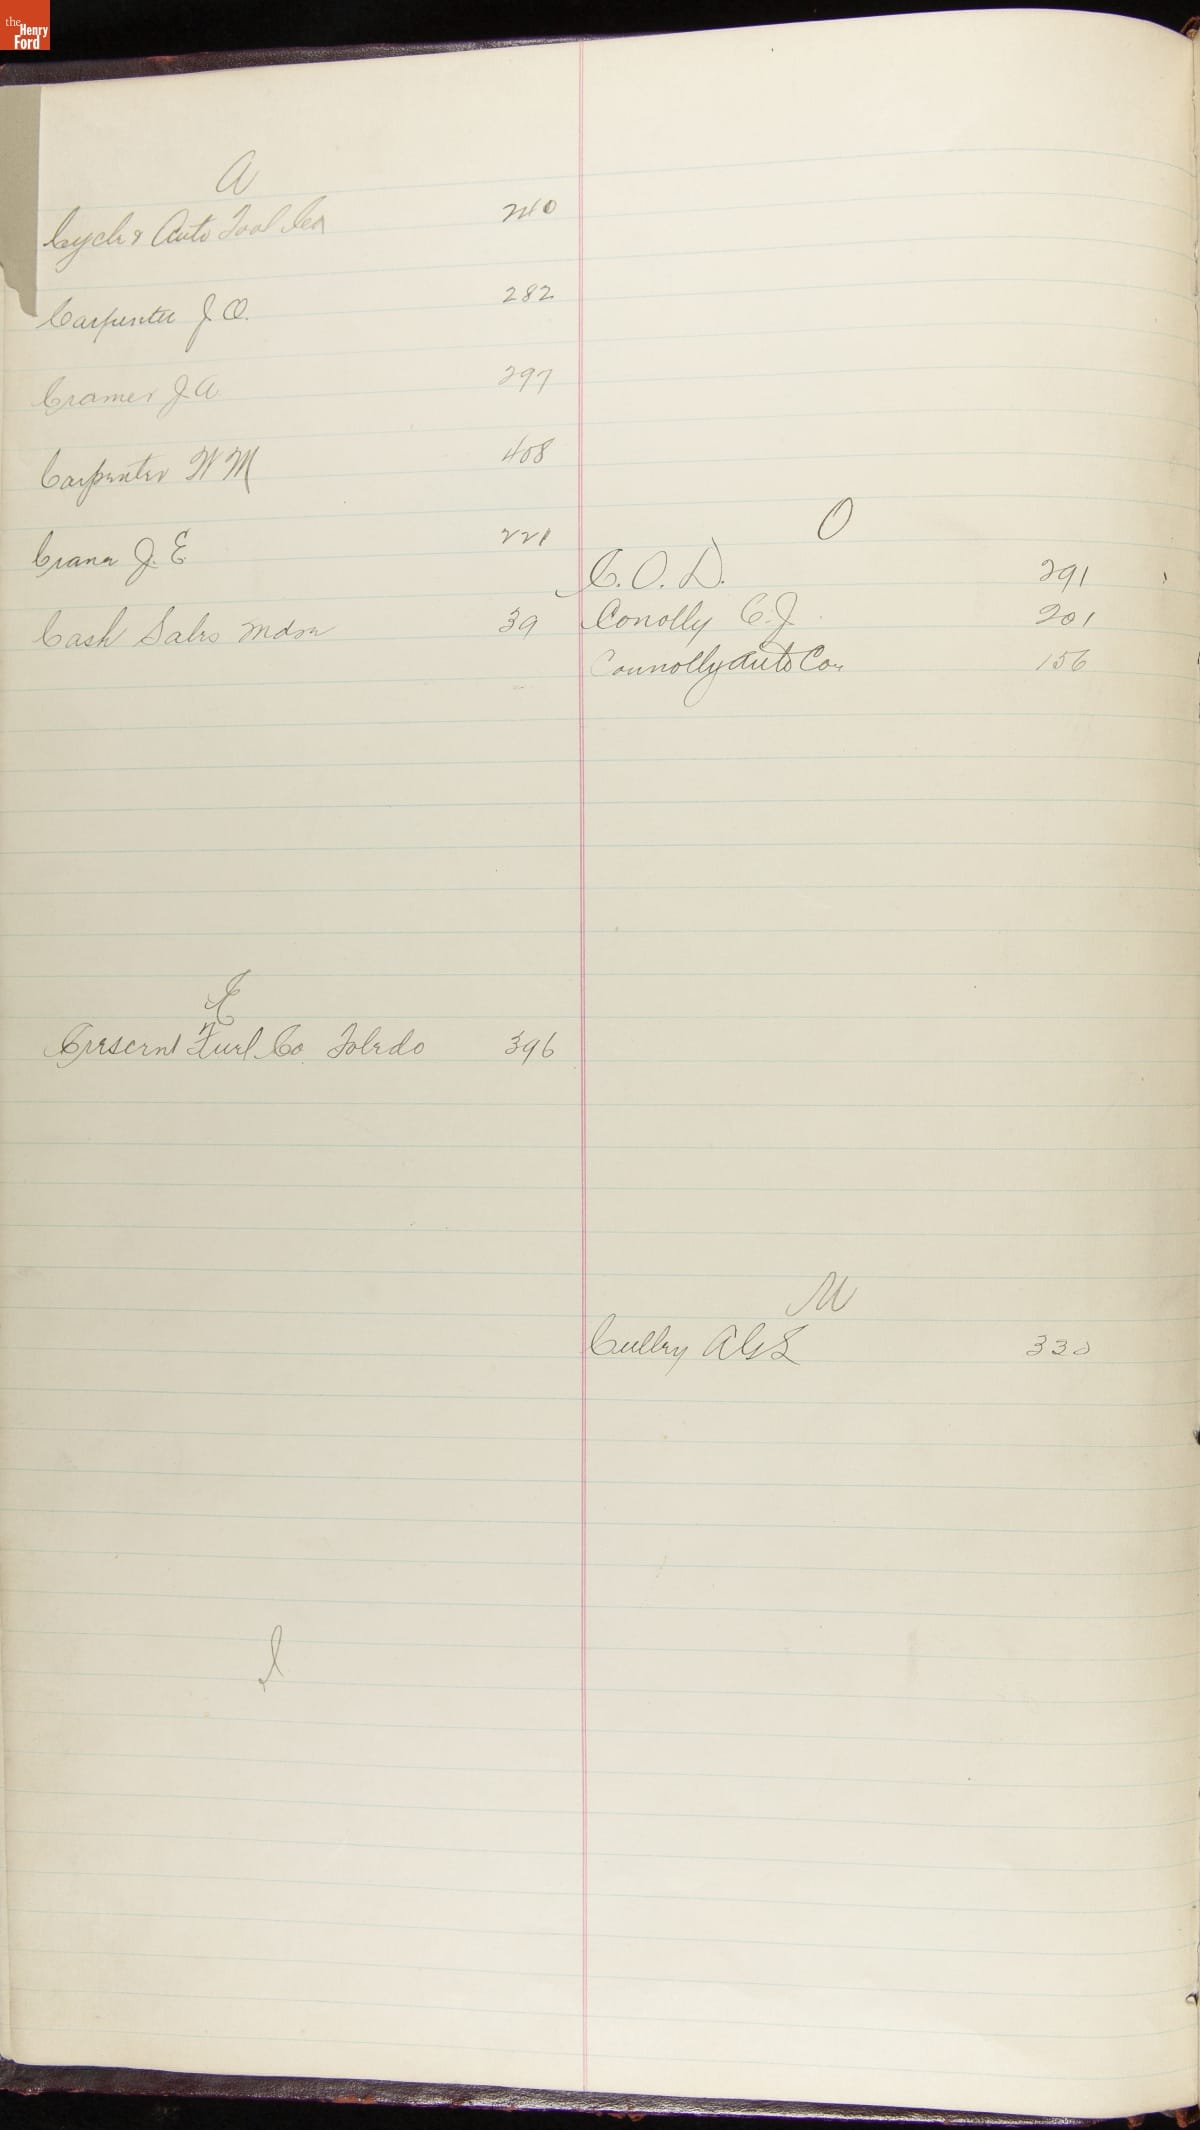 the Henry Ford
A
Cycle & Auto Tool Co 240
Carpenter J. O. 282
Cramer J. A. 297
Carpenter W M 408
Crane J. E. 221
Cash Sales Mdse 39
E
Crescent Fuel Co. Toledo 396
I
O
C. O. D. 291
Conolly C. J. 201
Connolly Auto Co. 156
U
Culley 330